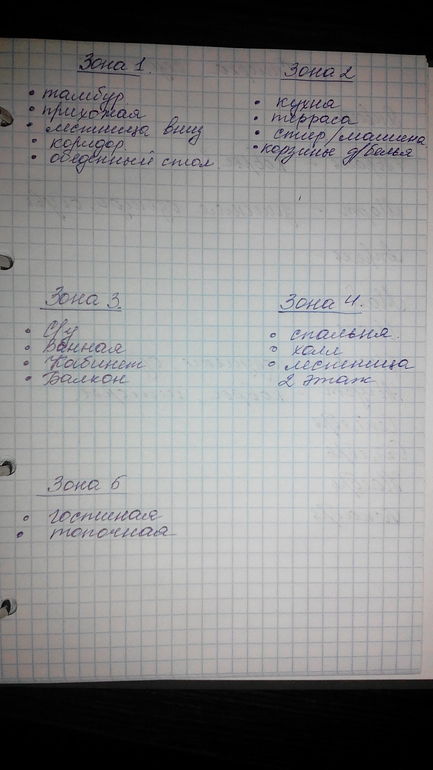 Зона 1.
• тамбур
• прихожая
• лестница вниз
• коридор
• обеденный стол
Зона 2
• кухня
• терраса
• стир/машина
• корзины д/белья
Зона 3
• С/у
• Ванная
• Кабинет
• Балкон
Зона 4.
• спальня
• холл
• лестница
2 этаж
Зона 5
• гостиная
• топочная